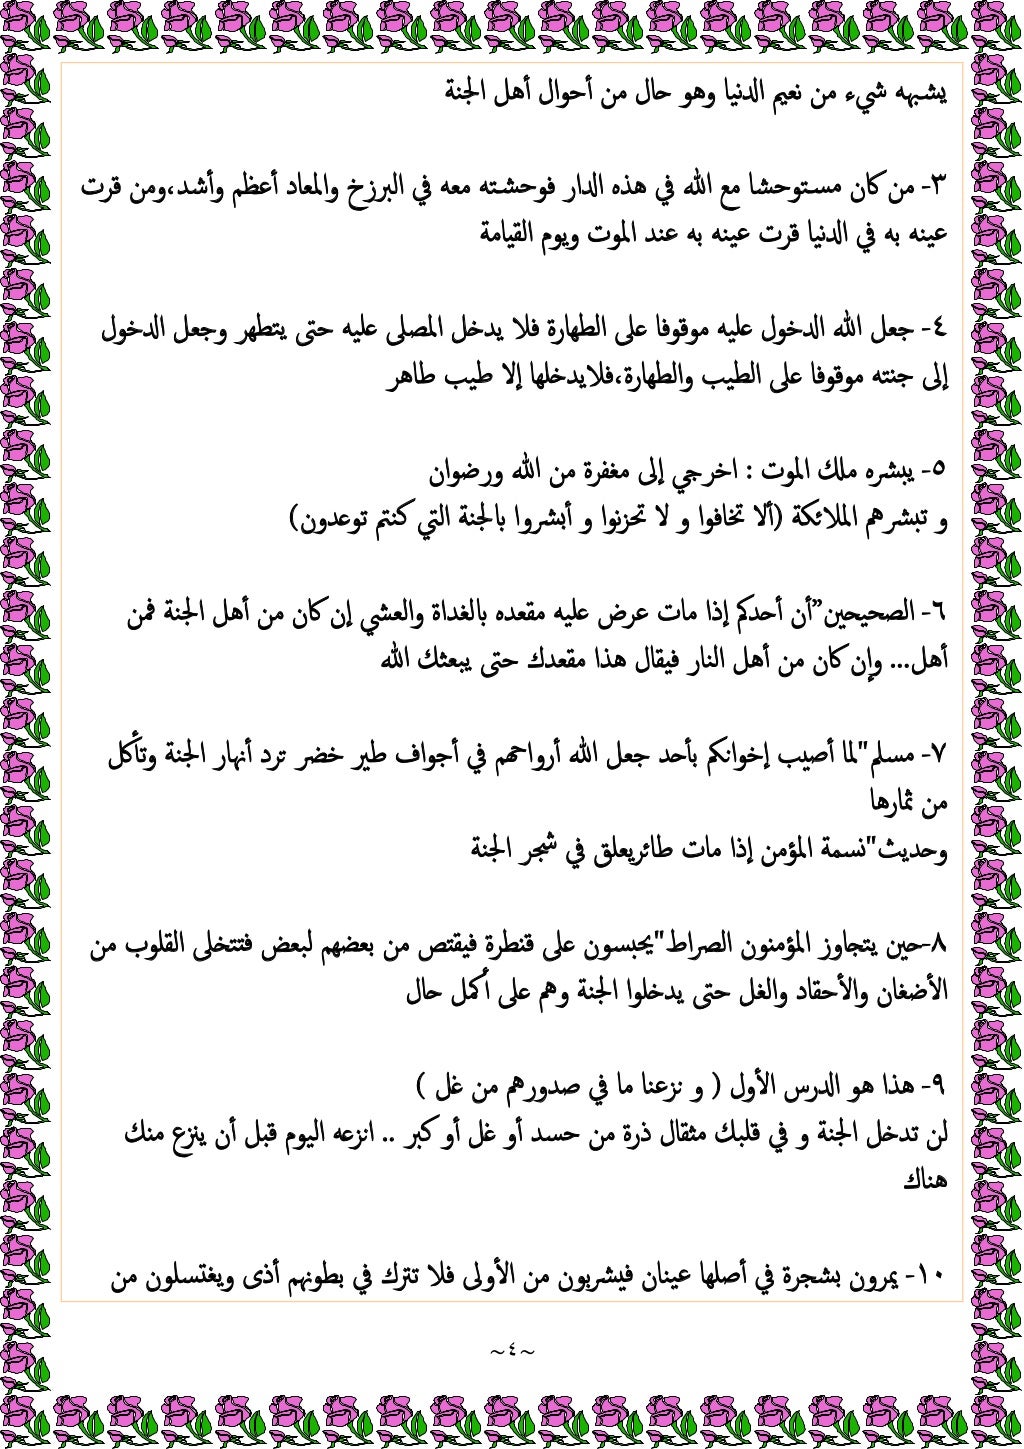 يشبهه شيء من نعيم الدنيا وهو حال من أحوال أهل الجنة
٣- من كان مستوحشا مع الله في هذه الدار فوحشته معه في البرزخ والمعاد أعظم وأشد،ومن قرت
عينه به في الدنيا قرت عينه به عند الموت ويوم القيامة
٤- جعل الله الدخول عليه موقوفا على الطهارة فلا يدخل المصلى عليه حتى يتطهر وجعل الدخول
إلى جنته موقوفا على الطيب والطهارة،فلايدخلها إلا طيب طاهر
٥- يبشره ملك الموت : اخرجي إلى مغفرة من الله ورضوان
و تبشرهم الملائكة (ألا تخافوا و لا تحزنوا و أبشروا بالجنة التي كنتم توعدون)
٦- الصحيحين”أن أحدكم إذا مات عرض عليه مقعده بالغداة والعشي إن كان من أهل الجنة فمن
أهل... وإن كان من أهل النار فيقال هذا مقعدك حتى يبعثك الله
٧- مسلم"لما أصيب إخوانكم بأحد جعل الله أرواحهم في أجواف طير خضر ترد أنهار الجنة وتأكل
من ثمارها
وحديث"نسمة المؤمن إذا مات طائريعلق في شجر الجنة
٨-حين يتجاوز المؤمنون الصراط"يحبسون على قنطرة فيقتص من بعضهم لبعض فتتخلى القلوب من
الأضغان والأحقاد والغل حتى يدخلوا الجنة وهم على أكمل حال
٩- هذا هو الدرس الأول ( و نزعنا ما في صدورهم من غل )
لن تدخل الجنة و في قلبك مثقال ذرة من حسد أو غل أو كبر .. انزعه اليوم قبل أن ينزع منك
هناك
١٠- يمرون بشجرة في أصلها عينان فيشربون من الأولى فلا تترك في بطونهم أذى ويغتسلون من
~٤~